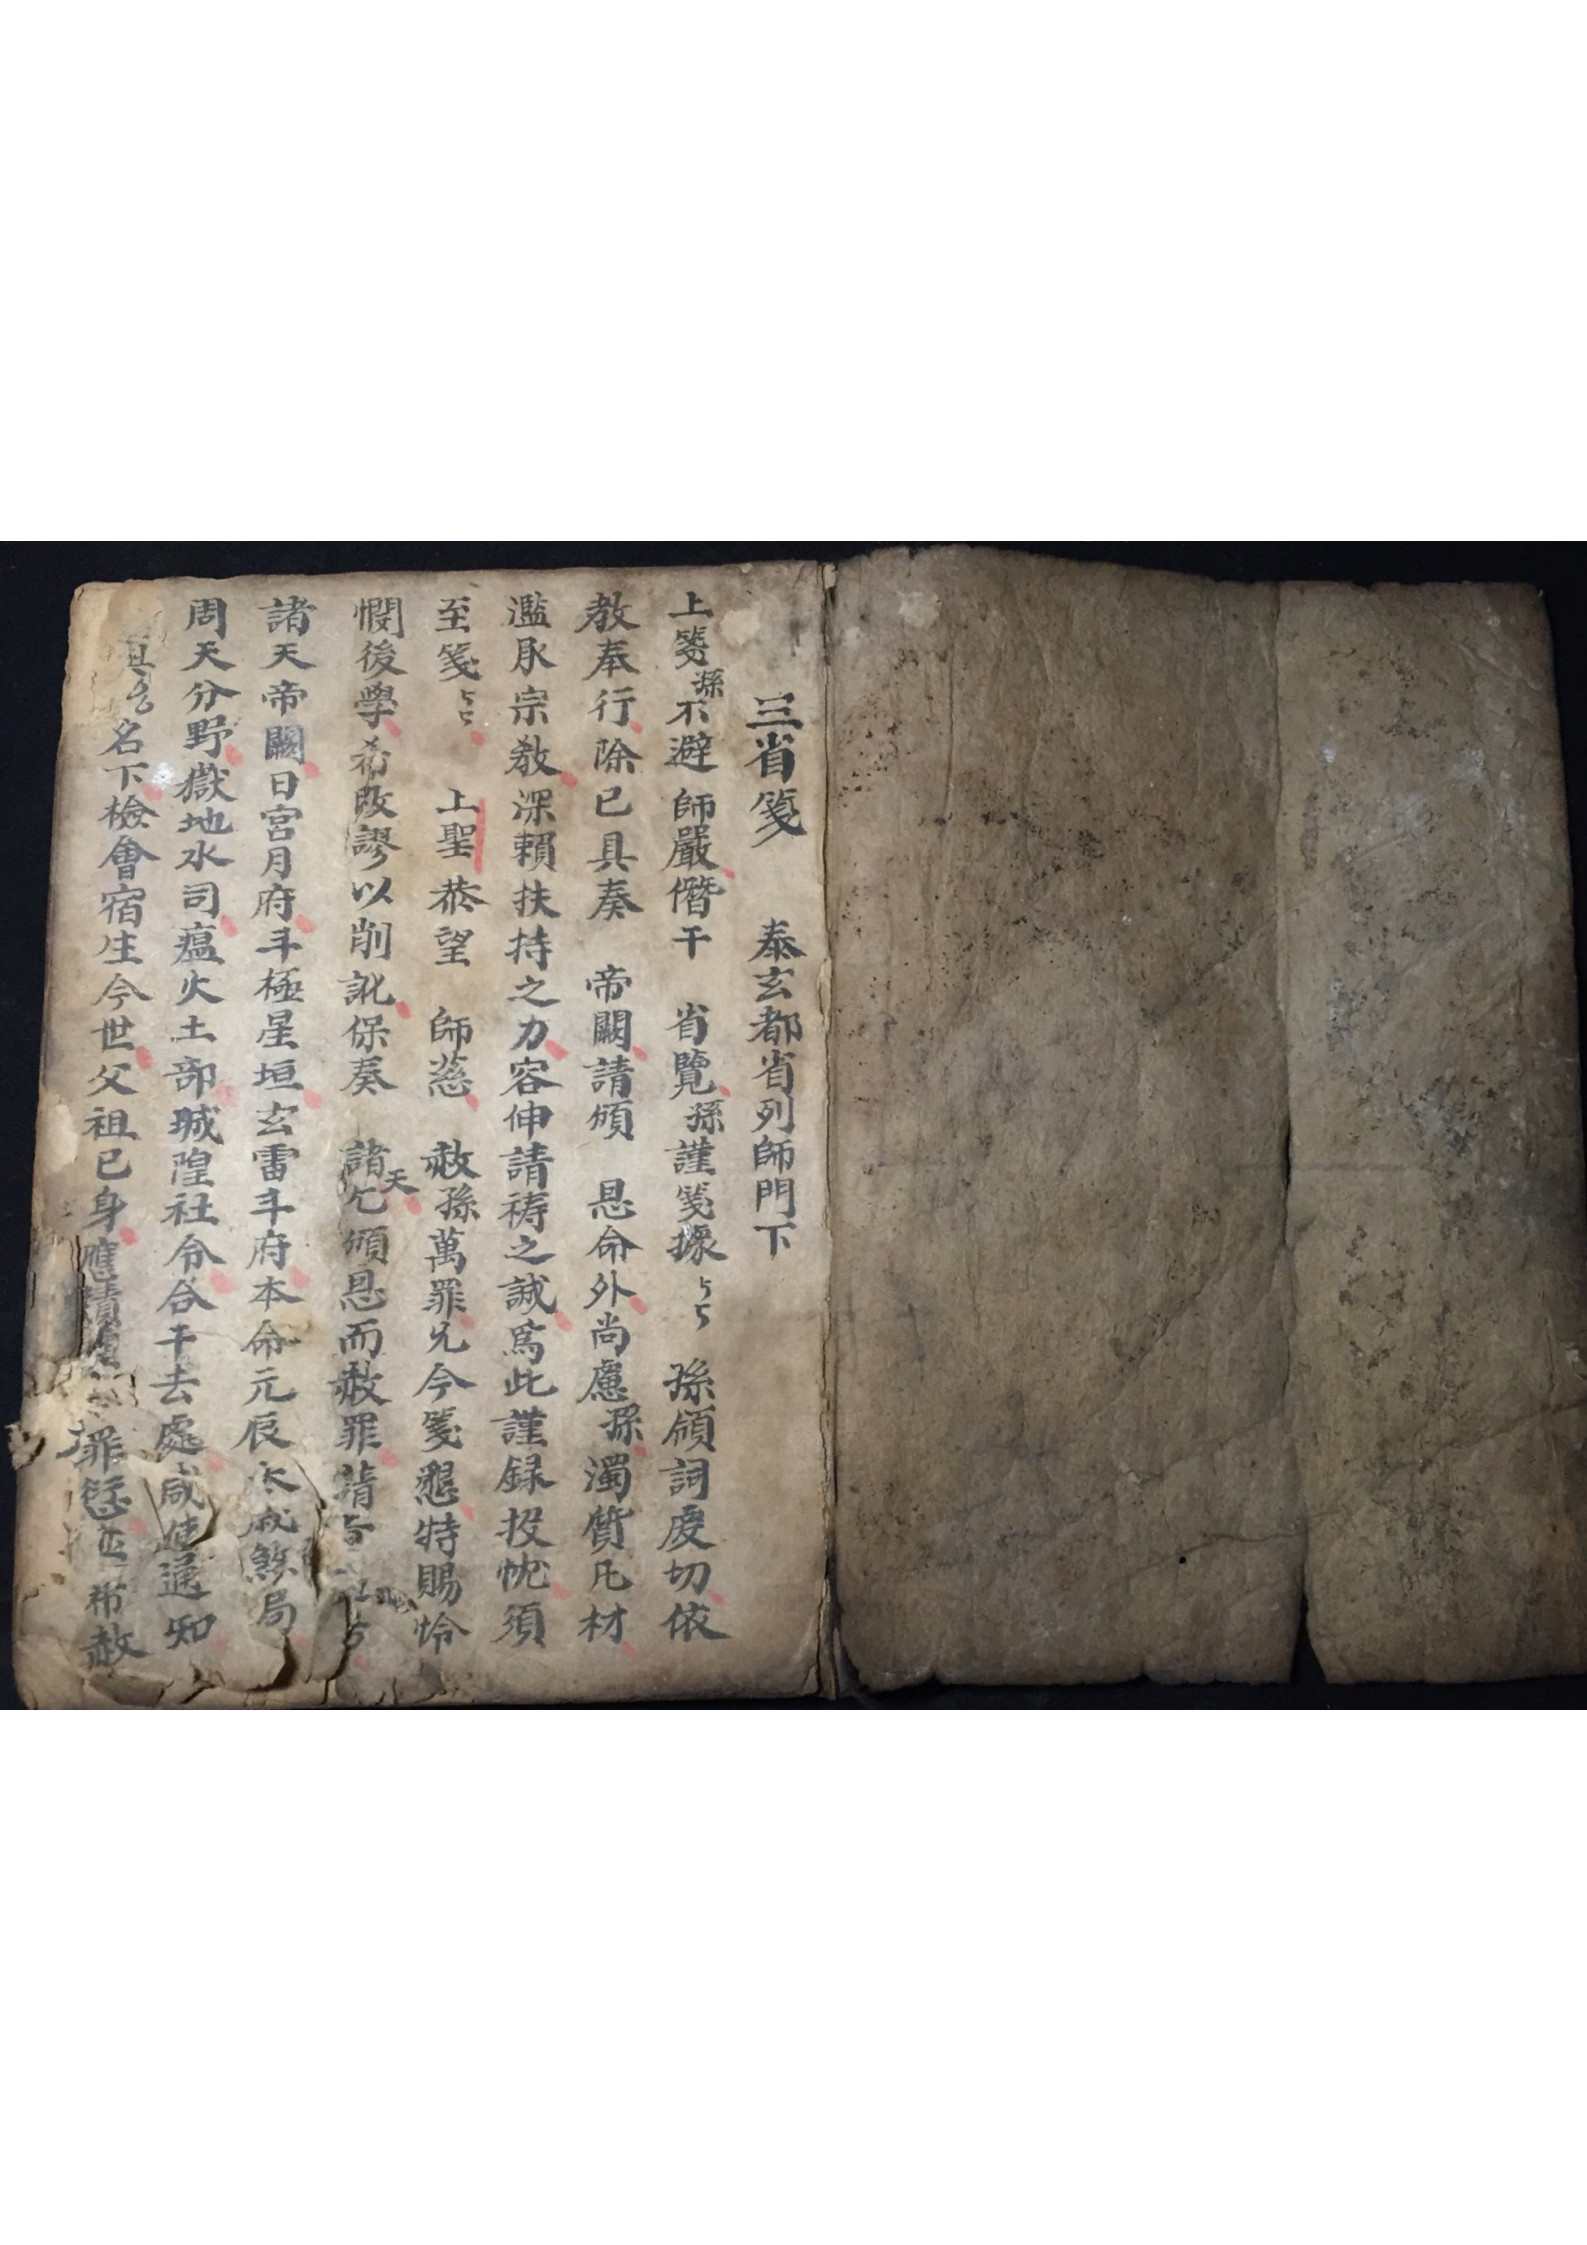 三省箋 泰玄都省列師門下
上箋孫不避 師嚴僭干 省覽孫謹箋據 孫領詞虔切依
教奉行除已具奏 帝闕請頒 恩命外尚慮孫濁質凡材
濫承宗教深賴扶持之力容伸請祷之誠爲此謹録投忱須
至箋 上聖恭望 師慈 赦孫萬罪允今箋懇特賜怜
憫後學希改謬以削訛保奏 諸天乞頒恩而赦罪
諸天帝闕日宮月府斗極星垣玄雷斗府本命元辰太歲煞局
周天分野嶽地水司瘟火土部城隍社令合干去處咸使通知
名下檢會宿生今世父祖已身應 罪愆並希赦